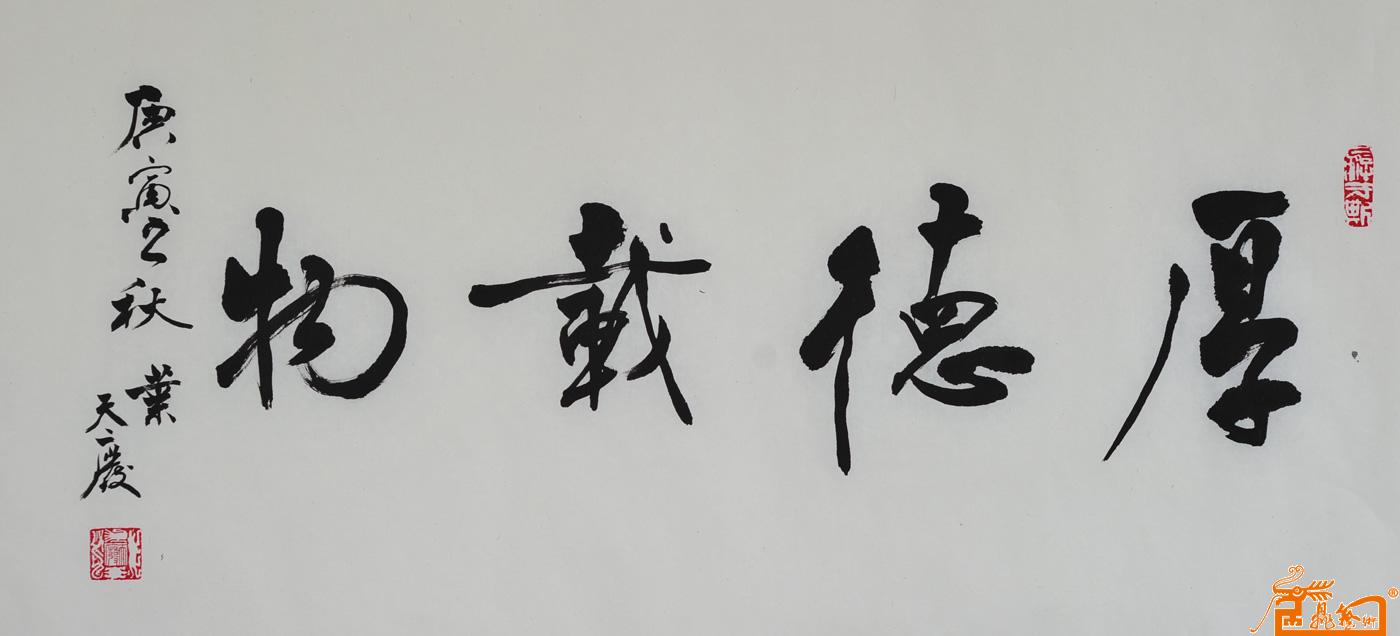 厚德載物
庚寅之秋 葉
天